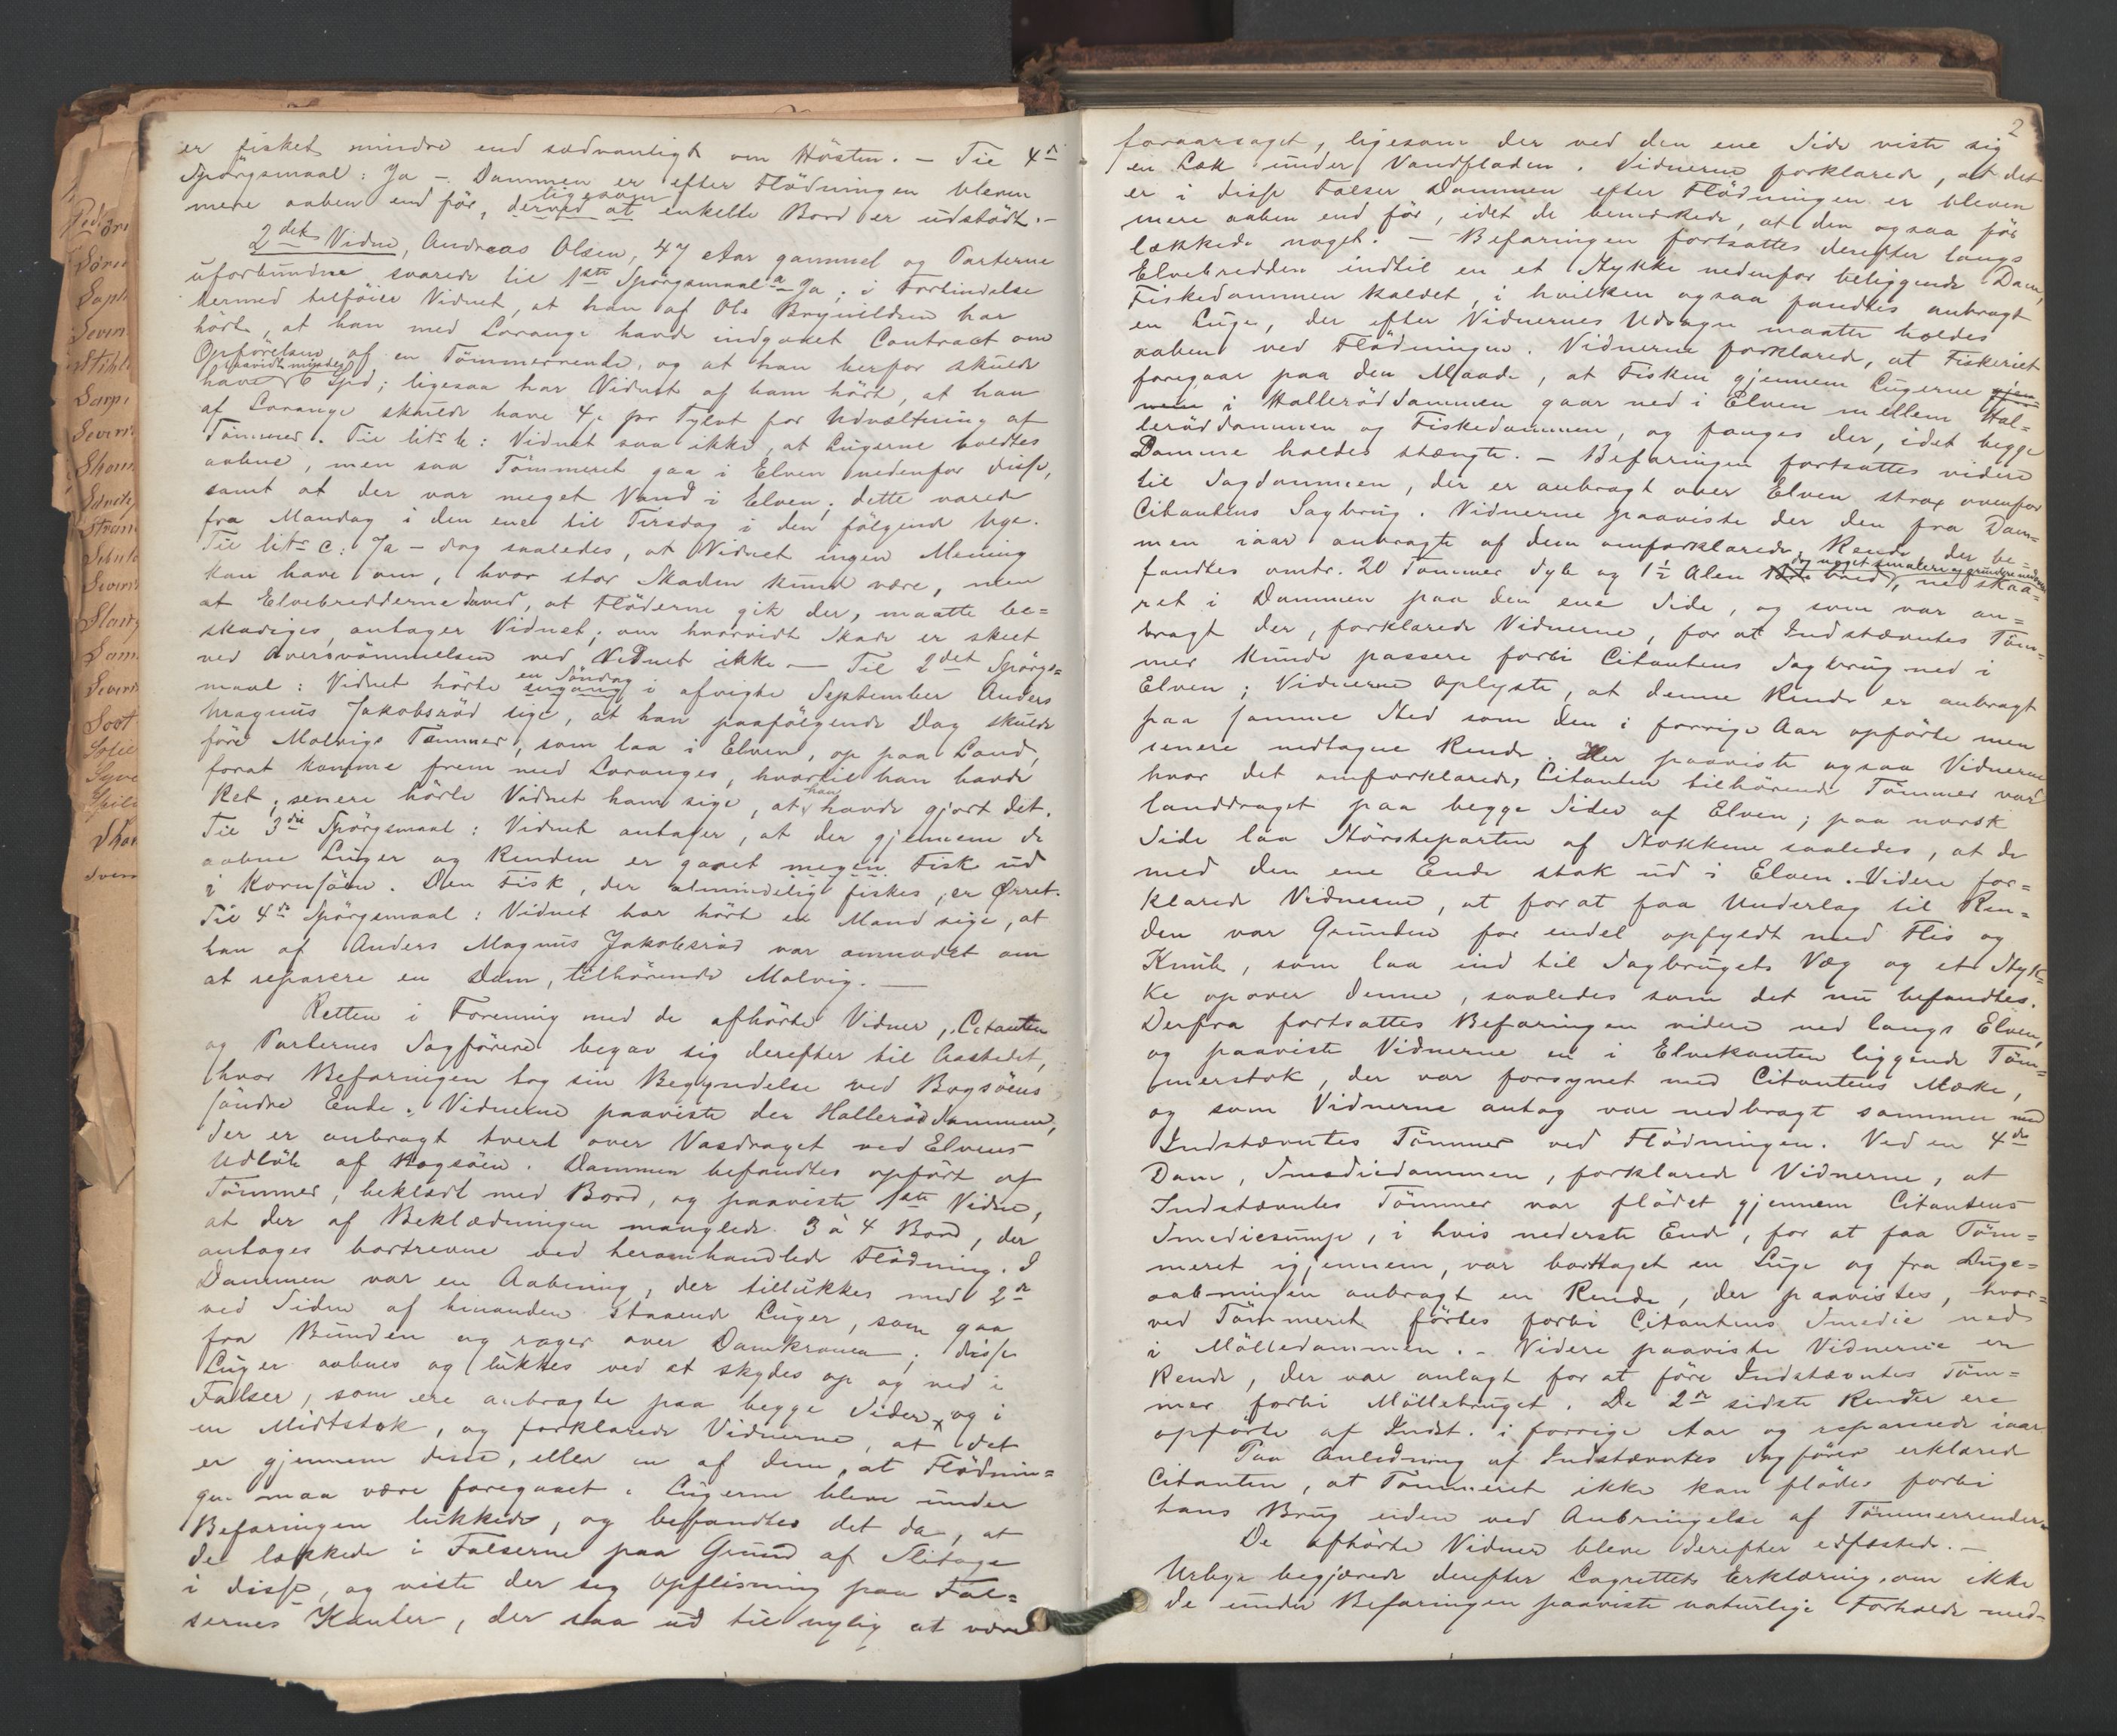 er fisket mindre end sædvanligt om Hösten. – Til 4de
Spörgsmaal: Ja – Dammen er efter Flödningen bleven
mere aaben end för, ligesom derved at enkelte Bord er udstödt. –
2det Vidne, Andreas Olsen, 47 Aar gammel og Parterne
uforbundne svarede til 1ste Spörgsmaal a Ja; i Forbindelse
hermed tilföiede Vidnet, at han af Ole Brynildsen har
hört, at han med Lorange havde indgaaet Contract om
Opförelsen af en Tömmerrende, og at han herfor skulde
have (saavidt mindes) 6 Spd; ligesaa har Vidnet af ham hört, at han
af Lorange skulde have 4 pr Tylvt for Udvæltning af
Tömmer. Til litr b: Vidnet saa ikke, at Lugerne holdtes
aabne, men saa Tömmeret gaa i Elven nedenfor disse,
samt at der var meget Vand i Elven; dette varede
fra Mandag i den ene til Tirsdag i den fölgende Uge.
Til litr c: Ja – dog saaledes, at Vidnet ingen Mening
kan have om, hvor stor Skaden kunde være, men
at Elvebredderne derved, at Flöderne gik der, maatte be=
skadiges, antager Vidnet; om hvorvidt Skade er skeet
ved Oversvömmelsen ved Vidnet ikke. – Til 2det Spörgs=
maal: Vidnet hörte engang en Söndag i afvigte September Anders
Magnus Jakobsröd sige, at han paafölgende Dag skulde
före Molvigs Tömmer, som laa i Elven, op paa Land,
forat komme frem med Loranges, hvortil han havde
Ret; senere hörte Vidnet ham sige, at han havde gjort det.
Til 3die Spörgsmaal: Vidnet antager, at der gjennem de
aabne Luger og Renden er gaaet megen Fisk ud
i Kornsöen. Den Fisk, der almindelig fiskes, er Ørret.
Til 4de Spörgsmaal: Vidnet har hört en Mand sige, at
han af Anders Magnus Jakobsröd var anmodet om
at reparere en Dam, tilhörende Molvig. –
Retten i Forening med de afhörte Vidner, Citanten
og Parternes Sagförere begav sig derefter til Aastedet,
hvor Befaringen tog sin Begyndelse ved Bogsöens
söndre Ende. Vidnerne paaviste der Halleröddammen,
der er anbragt tvert over Vasdraget ved Elvens
Udlöb af Bogsöen. Dammen befandtes opfört af
Tömmer, beklædt med Bord, og paaviste 1ste Vidne,
at der af Beklædningen manglede 3 à 4 Bord, der
antages bortrevne ved heromhandlede Flödning. I
Dammen var en Aabning, der tillukkes med 2de
ved Siden af hinanden staaende Luger, som gaa
fra Bunden og rager over Damkronen; disse
Luger aabnes og lukkes ved at skydes op og ned i
Falser, som ere anbragte paa begge Sider og i
en Midtstok, og forklarede Vidnerne, at det
er gjennem disse, eller en af dem, at Flödnin=
gen maa være foregaaet. Lugerne bleve under
Befaringen lukkede, og befandtes det da, at
de lækkede i Falserne paa Grund af Slitage
i disse, og viste der sig Opflisning paa Fal=
sernes Kanter, der saa ud til nylig at være
2
foraarsaget, ligesom der ved den ene Side viste sig
en Læk under Vandfladen. Vidnerne forklarede, at det
er i disse Falser Dammen efter Flödningen er bleven
mere aaben end för, idet de bemærkede, at den ogsaa för
lækkede noget. – Befaringen fortsattes derefter langs
Elvebredden indtil en et Stykke nedenfor beliggende Dam,
Fiskedammen kaldet, i hvilken ogsaa fandtes anbragt
en Luge, der efter Vidnernes Udsagn maatte holdes
aaben ved Flödningen. Vidnerne forklarede, at Fiskeriet
foregaar paa den Maade, at Fisken gjennem Lugerne gjen
nem i Halleröddammen gaar ned i Elven mellem Hal=
leröddammen og Fiskedammen, og fanges der, idet begge
Damme holdes stængte. – Befaringen fortsattes videre
til Sagdammen, der er anbragt over Elven strax ovenfor
Citantens Sagbrug. Vidnerne paaviste der den fra Dam=
men iaar anbragte af dem omforklarede Rende, der be=
fandtes omtr. 20 Tommer dyb og 1½ Alen bred, dog noget smalere og grundere nedover, ne skaa=
ret i Dammen paa den ene Side, og som var an=
bragt der, forklarede Vidnerne, for at Indstævntes Töm=
mer kunde passere forbi Citantens Sagbrug ned i
Elven; Vidnerne oplyste, at denne Rende er anbragt
paa samme Sted som den i forrige Aar opförte men
senere nedtagne Rende. Her paaviste ogsaa Vidnerne
hvor det omforklarede, Citanten tilhörende Tömmer var
landdraget paa begge Sider af Elven; paa norsk
Side laa Störsteparten af Stokkene saaledes, at de
med den ene Ende stak ud i Elven. Videre for=
klarede Vidnerne, at forat faa Underlag til Ren=
den var Grunden for endel opfyldt med Flis og
Knub, som laa ind til Sagbrugets Væg og et Styk=
ke opover denne, saaledes som det nu befandtes.
Derfra fortsattes Befaringen videre ned langs Elven,
og paaviste Vidnerne en i Elvekanten liggende Töm=
merstok, der var forsynet med Citantens Mærke,
og som Vidnerne antog var nedbragt sammen med
Indstævntes Tömmer ved Flödningen. Ved en 4de
Dam, Smediedammen, forklarede Vidnerne, at
Indstævntes Tömmer var flödet gjennem Citantens
Smediesump, i hvis nederste Ende, for at faa Töm=
meret igjennem, var borttaget en Luge og fra Luge=
aabningen anbragt en Rende, der paavistes, hvor=
ved Tömmeret förtes forbi Citantens Smedie ned
i Mölledammen. – Videre paaviste Vidnerne en
Rende, der var anlagt for at före Indstævntes Töm=
mer forbi Möllebruget. De 2de sidste Render ere
opförte af Indst. i forrige Aar og reparerede iaar
Paa Anledning af Indstævntes Sagförer erklærede
Citanten, at Tömmeret ikke kan flödes forbi
hans Brug uden ved Anbringelse af Tömmerrender.
De afhörte Vidner bleve derefter edfæstede. –
Urbye begjærede derefter Lagrettets Erklæring, om ikke
de under Befaringen paaviste naturlige Forholde med=